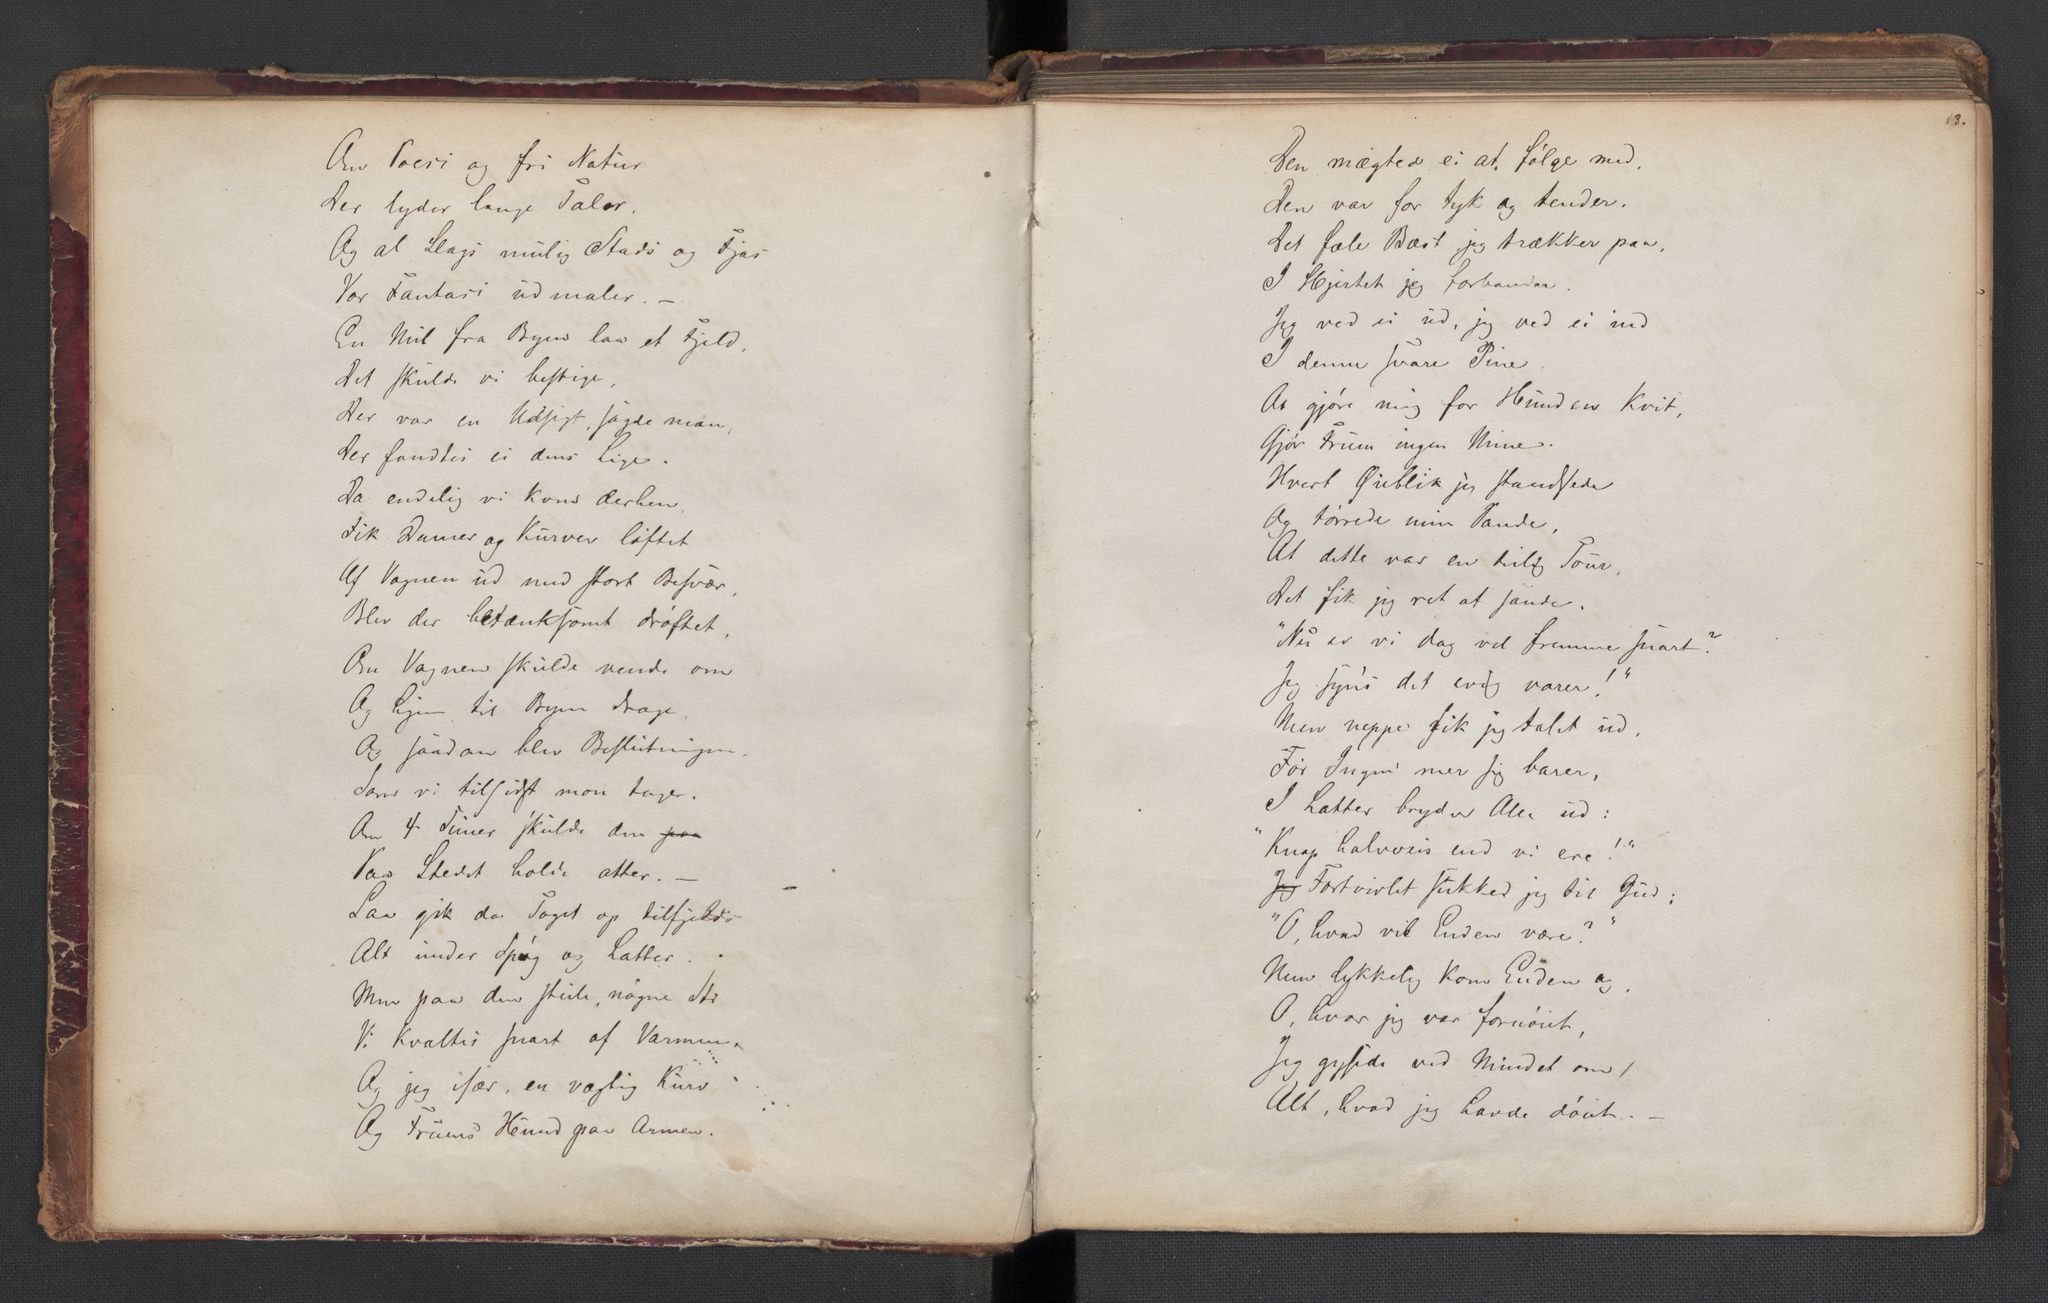 Om Poesi og fri Natur
Der lyder lange Taler,
Og al Slags mulig Stads og Fjas
Vor Fantasi udmaler. —
En Mil fra Byen laa et Fjeld,
Det skulde vi bestige,
Der var en Udsigt, sagde man,
Der fandtes ei dens Lige.
Da endelig vi kom derhen,
Fik Damer og Kurver løftet
Af Vognen ud med stort Besvær,
Blev der betænksomt drøftet,
Om Vognen skulde vende om
Og hjem til Byen drage,
Og saadan blev Beslutningen,
Som vi tilsidst mon tage.
Om 4 Timer skulde den paa
Paa Stedet holde atter. —
Saa gik da Toget op tilfjelds
Alt under Spøg og Latter.
Men paa den steile, nøgne Sti
Vi kvaltes snart af Varmen,
Og jeg især, en vægtig Kurv
Og Fruens Hund paa Armen.
13.
Den mægted ei at følge med,
Den var for tyk og tender.
Det fæle Bæst jeg trækker paa,
I Hjertet jeg forbander.
Jeg ved ei ud, jeg ved ei ind
I denne svare Pine,
At gjøre mig for Hunden kvit,
Gjør Fruen ingen Mine.
Hvert Øieblik jeg standsede
Og tørrede min Pande,
At dette var en deilig Tour,
Det fik jeg ret at sande.
"Nu er vi dog vel fremme snart?
Jeg syn's det evig varer!"
Men neppe fik jeg talet ud,
Før Ingen mer sig barer,
I Latter bryder Alle ud:
"Knap halvveis end vi ere!"
Jeg Fortvivlet sukked jeg til Gud;
"O, hvad vil Enden være?"
Men lykkelig kom Enden og,
O, hvor jeg var fornøiet,
Jeg gysede ved Mindet om
Alt, hvad jeg havde døiet. —